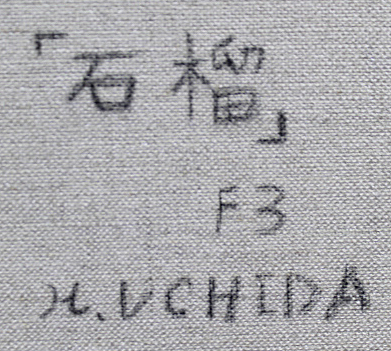 「石榴」
F3
H. UCHIDA